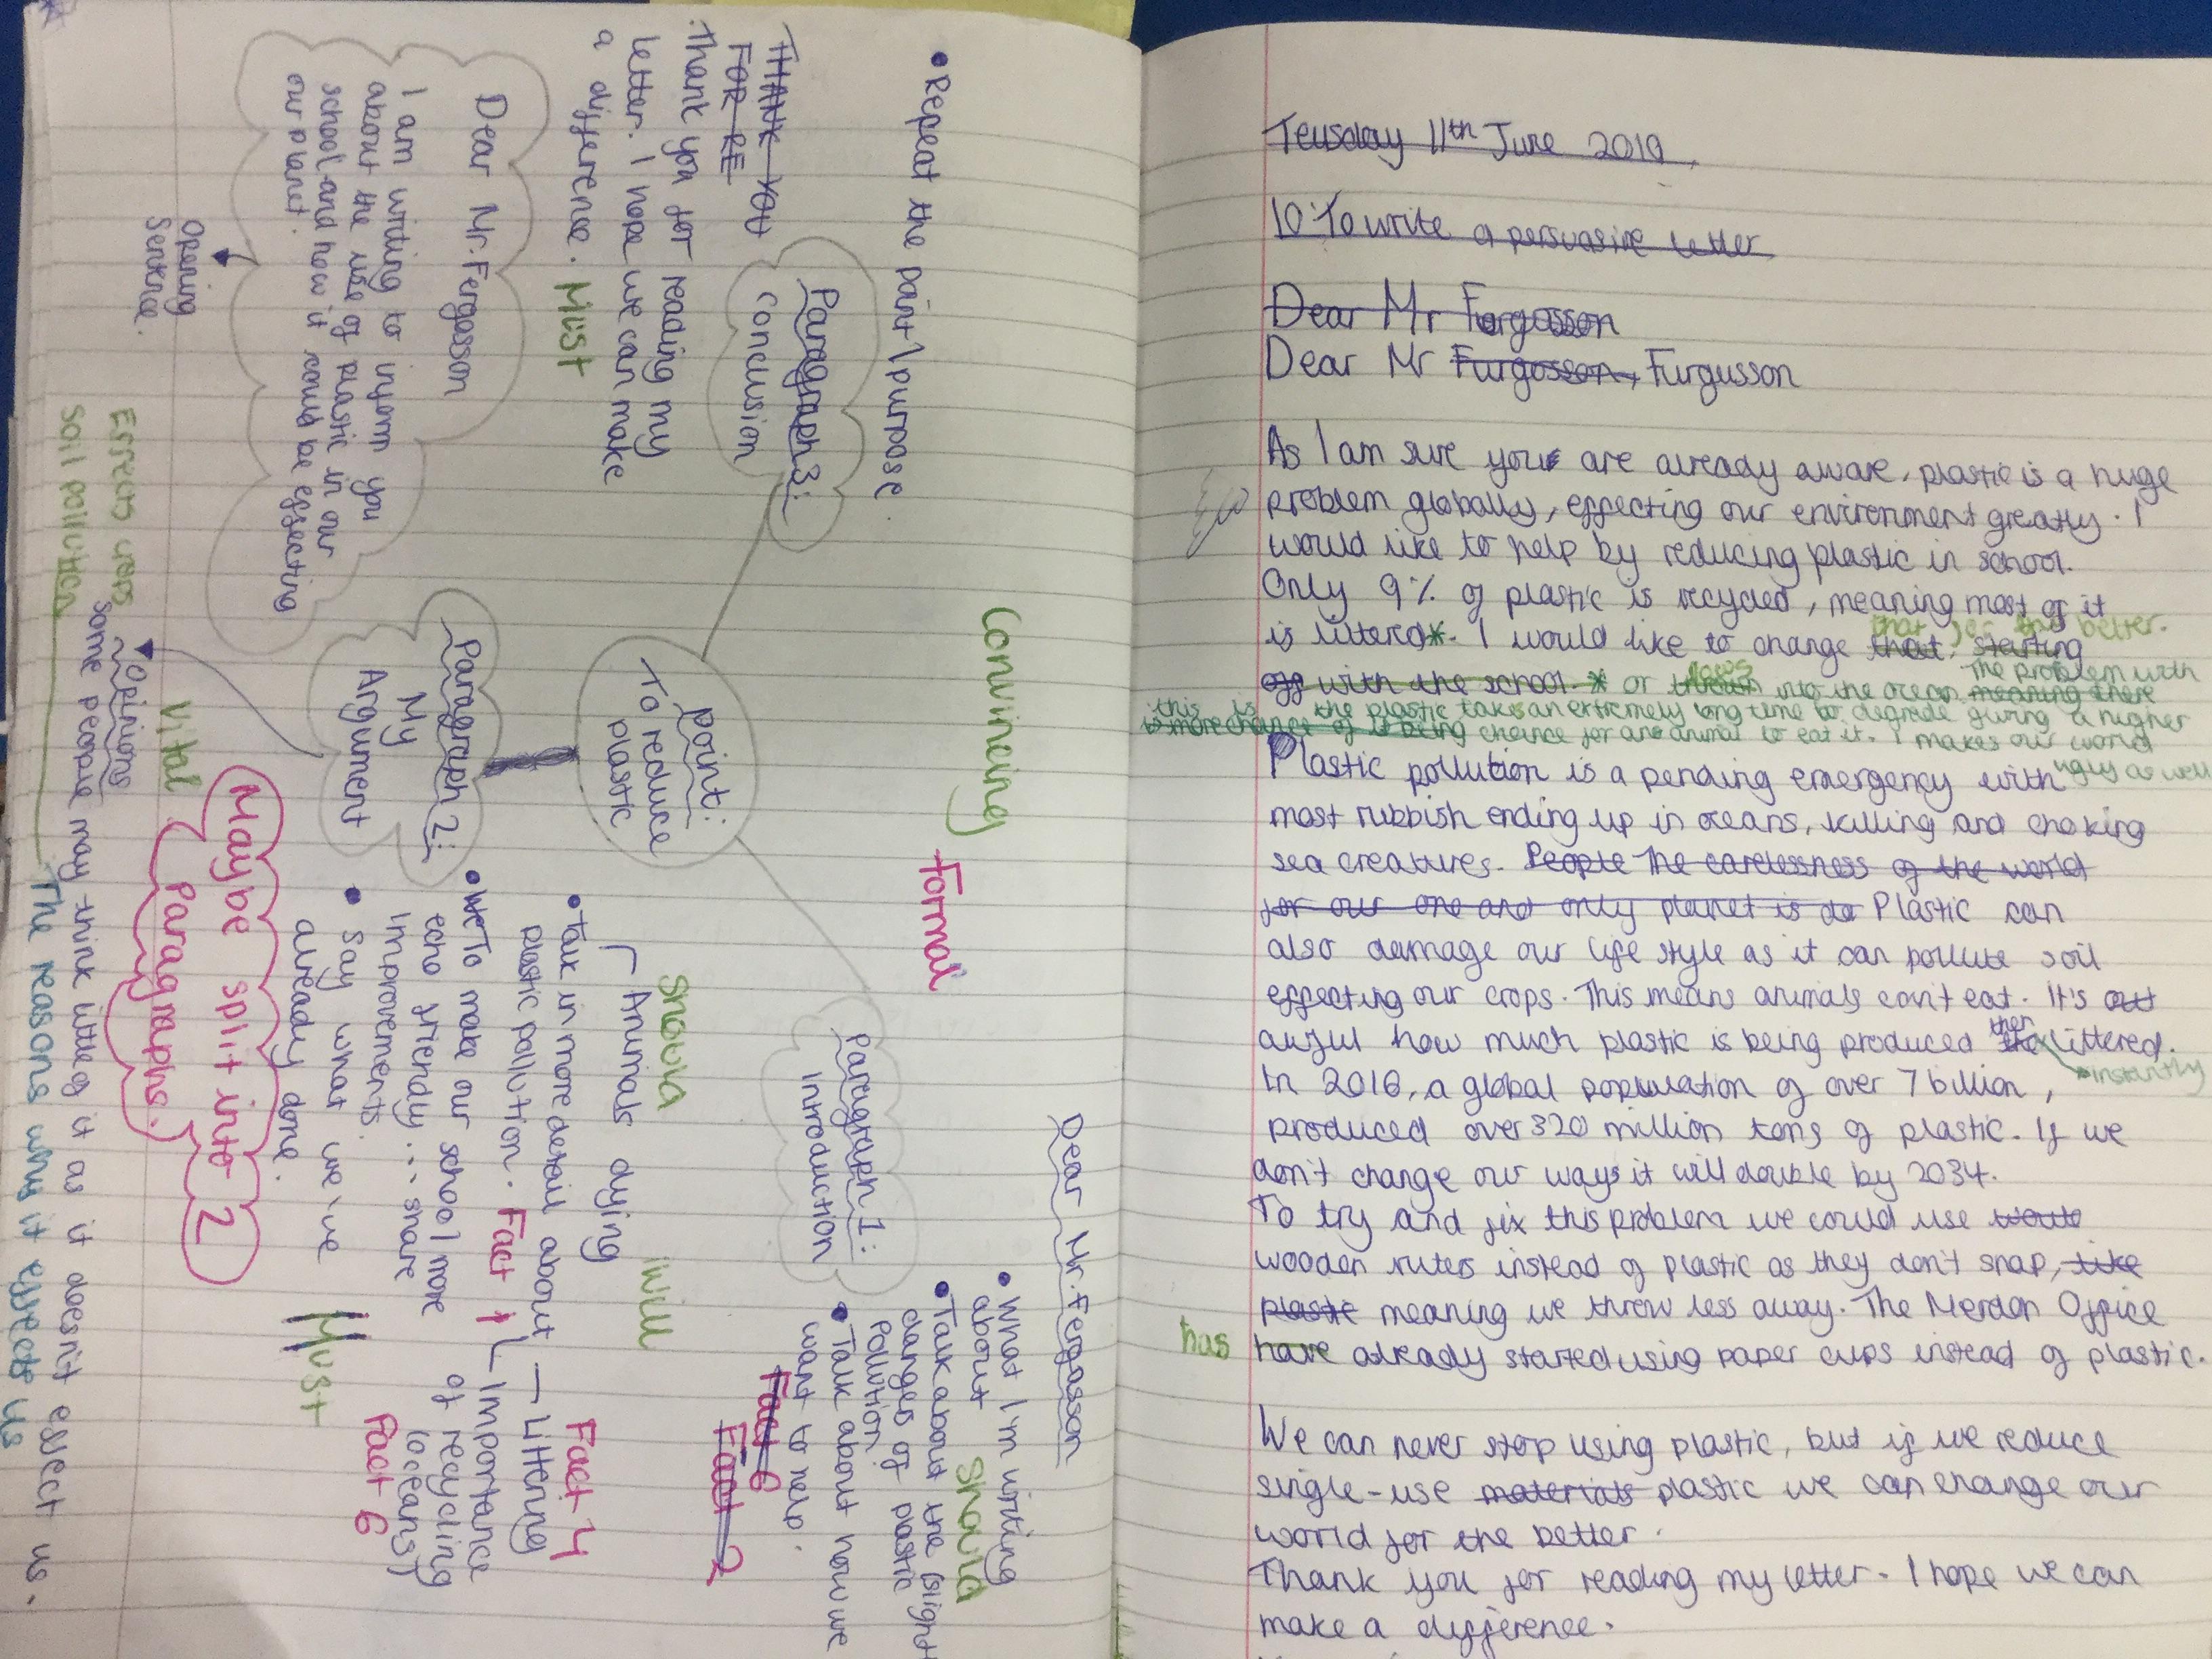 • Repeat the point / purpose
THANK YOU
FOR RE
Thank you for reading my
letter. I hope we can make
a difference. Must
Paragraph 3:
conclusion
Dear Mr. Fergosson
I am writing to inform you
about the use of plastic in our
school and how it could be effecting
our planet.
Opening
Sentence.
Convincing
Formal
point:
To reduce
plastic
Paragraph 2:
My
Argument
Opinions
Vital
Effects crops
Soil pollution
Some people may think little of it as it doesn't effect us.
The reasons why it effects us
Maybe split into 2
Paragraphs.
Should
Animals dying
• Talk in more detail about
plastic pollution. Fact 1
• To make our school more
echo friendly... share
improvements.
• Say what we've
already done.
will
Littering
Fact 4
Importance
of recycling
(oceans)
Fact 6
Must
Paragraph 1:
Introduction
Dear Mr. Fergosson
• What I'm writing
about
Should
• Talk about the (slight
danger of plastic
Pollution
• Talk about how we
want to help.
Fact 6
Fact 2
Teusday 11th June 2019
10: To write a persuasive letter
Dear Mr Fergosson
Dear Mr Furgosson, Furgusson
As I am sure you are already aware, plastic is a huge
problem globally, effecting our environment greatly. I
would like to help by reducing plastic in school.
Only 9% of plastic is recycled, meaning most of it
is littered*. I would like to change that. starting
that for the better.
off with the school. * or thrown flows into the ocean meaning there
The problem with
this is the plastic takes an extremely long time to degrade giving a higher
is more chance of it being chance for an animal to eat it. I makes our world
ugly as well
Plastic pollution is a pending emergency with
most rubbish ending up in oceans, killing and choking
sea creatures. People The carelessness of the world
for our one and only planet is do Plastic can
also damage our life style as it can pollute soil
effecting our crops. This means animals can't eat. It's
awful how much plastic is being produced then littered.
instantly
In 2016, a global population of over 7 billion,
produced over 320 million tons of plastic. If we
don't change our ways it will double by 2034.
To try and fix this problem we could use
wooden rulers instead of plastic as they don't snap, like
plastic meaning we throw less away. The Merdon Office
has have already started using paper cups instead of plastic.
We can never stop using plastic, but if we reduce
single-use materials plastic we can change our
world for the better.
Thank you for reading my letter. I hope we can
make a difference.